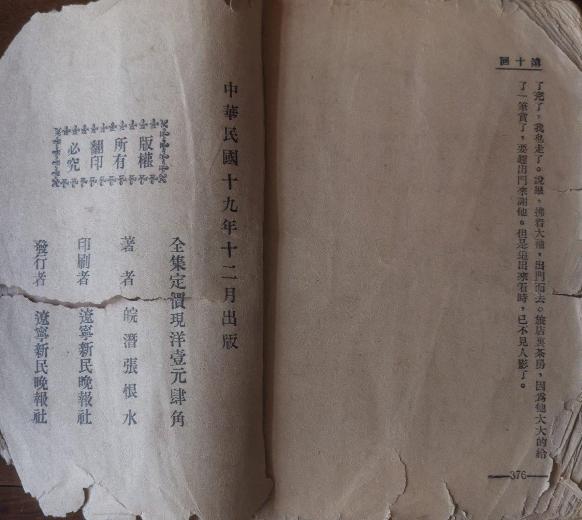 第十回
了完了，我也走了。說畢，拂着大袖，出門而去。旅店裏茶房，因爲他大大的給
了一筆賞了，要趕出門來謝他。但是追出來看時，已不見人影了。
376
中華民國十九年十二月出版
全集定價現洋壹元肆角
著者 皖潛張恨水
印刷者 遼寧新民晚報社
發行者 遼寧新民晚報社
版權
所有
翻印
必究